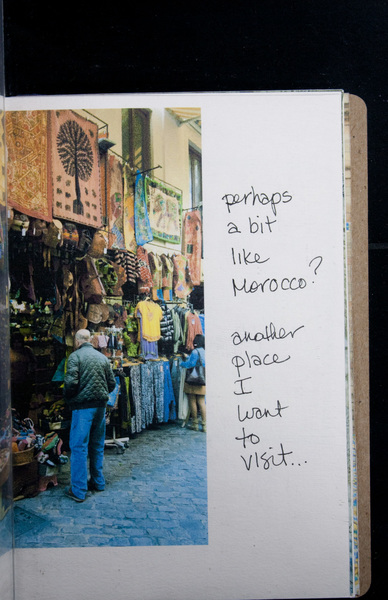 perhaps
a bit
like
Morocco?
another
place
I
want
to
visit...